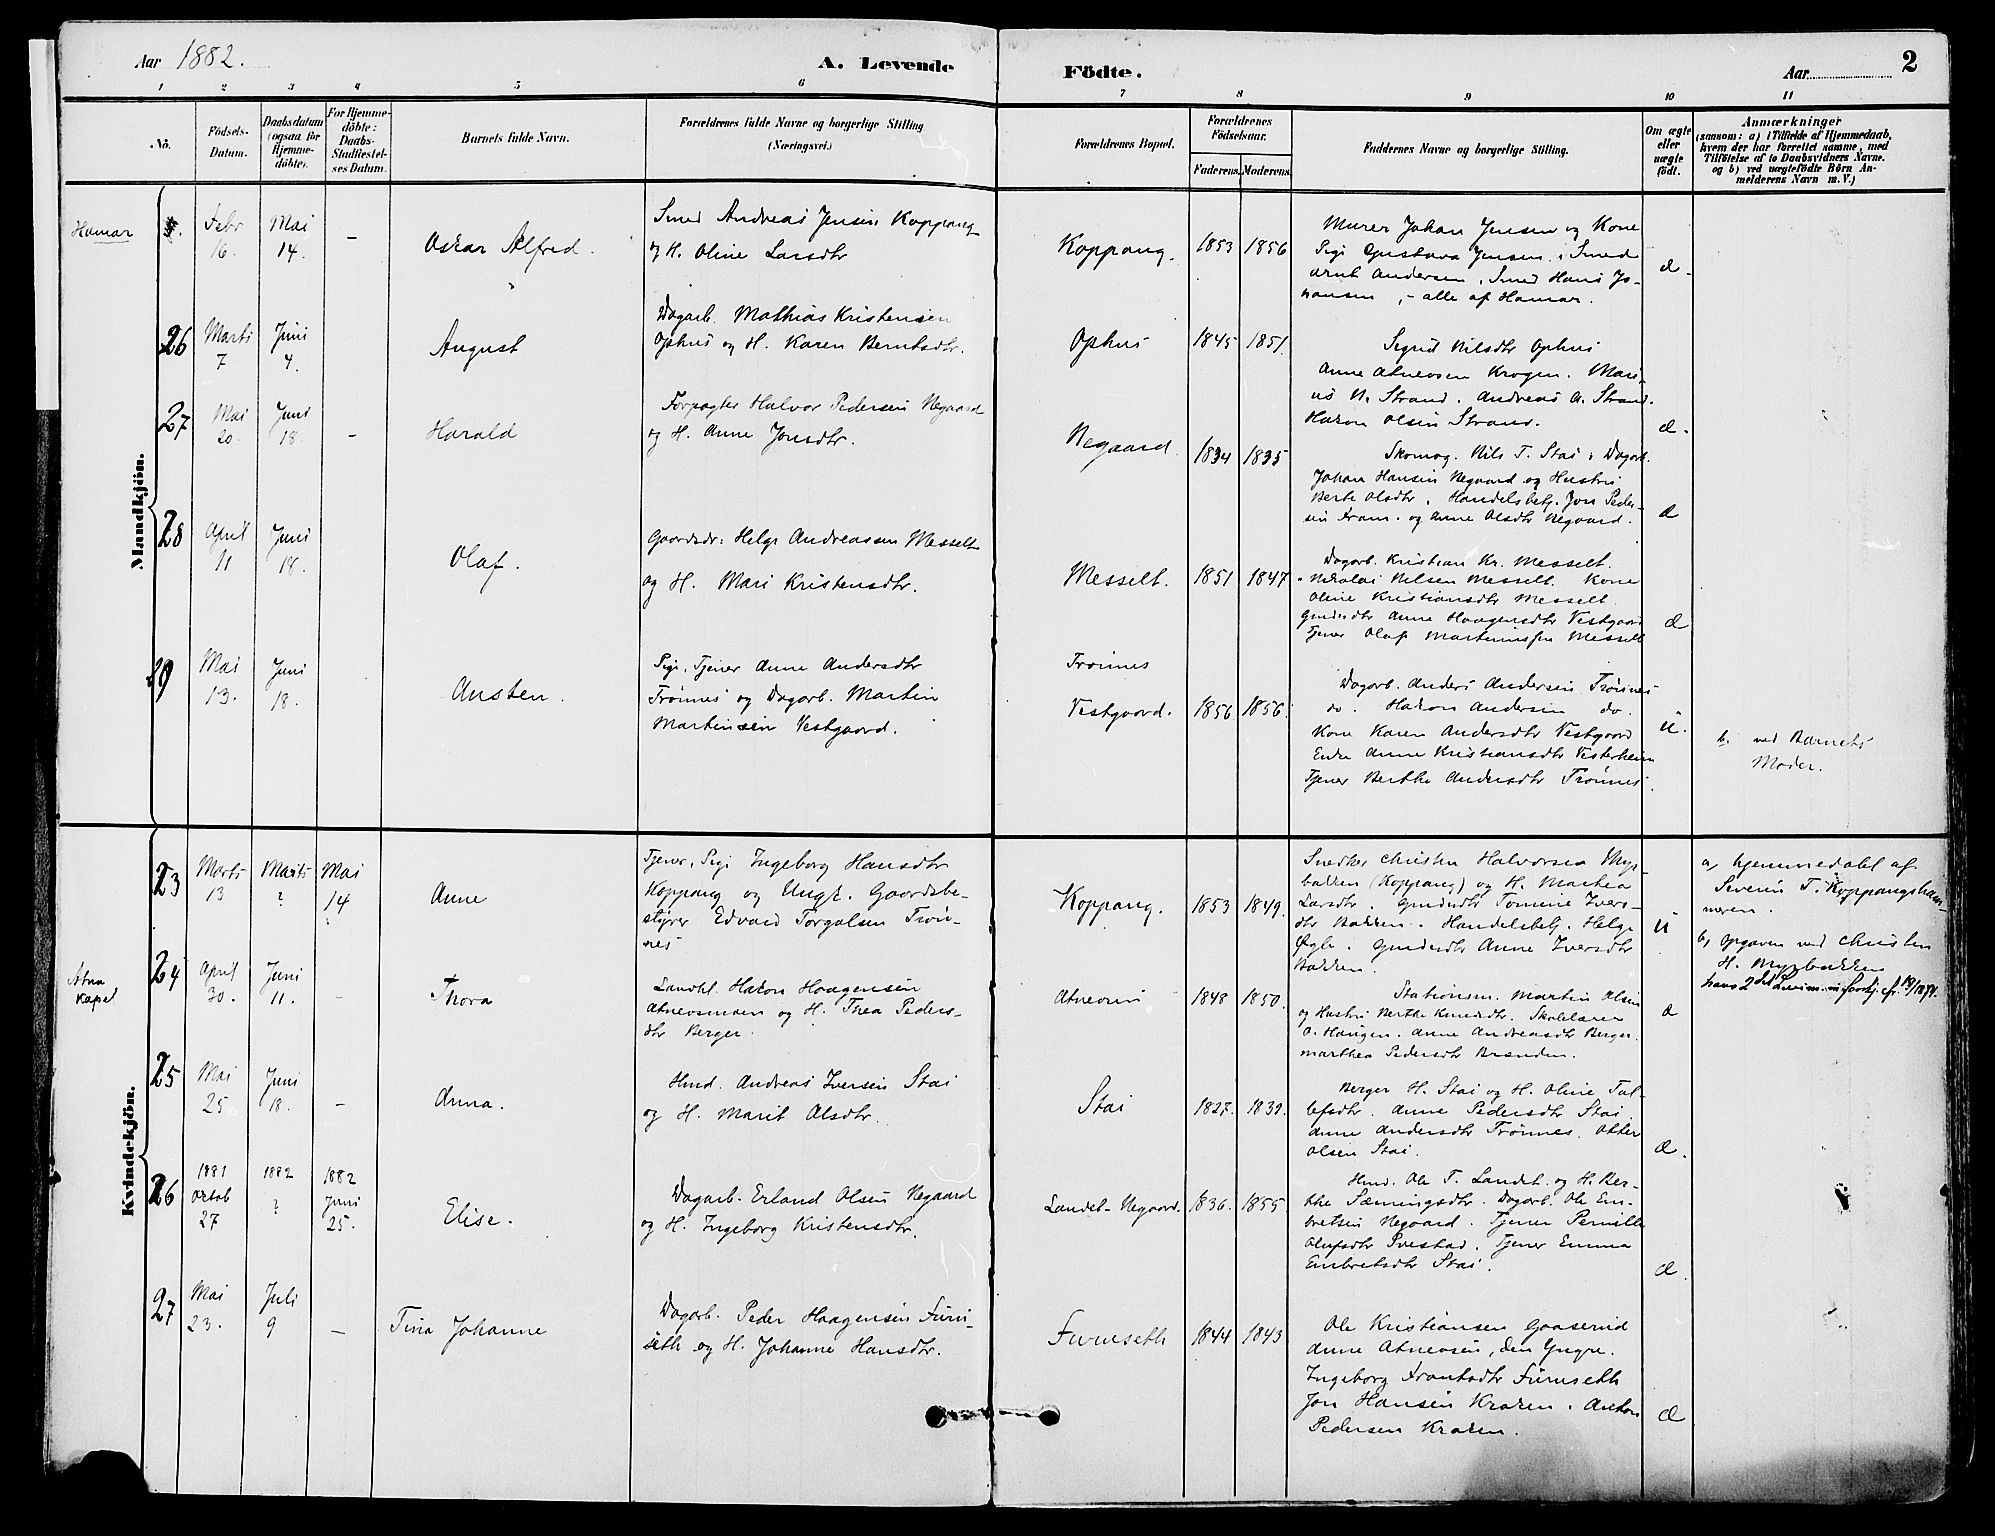 Aar 1882.
A. Levende Födte.
Aar
2
1 2 3 4 5 6 7 8 9 10 11
No.
Födsels-
Datum.
Daabsdatum
(ogsaa for
Hjemme-
döbte).
For Hjemme-
döbte:
Daabs-
Stadfæstel-
ses Datum.
Barnets fulde Navn.
Forældrenes fulde Navne og borgerlige Stilling
(Næringsvei.)
Forældrenes Bopæl.
Forældrenes
Födselsaar.
Faderens. Moderens.
Faddernes Navne og borgerlige Stilling.
Om ægte
eller
uægte
födt.
Anmærkninger
(saasom: a) i Tilfælde af Hjemmedaab,
hvem der har forrettet samme, med
Tilföielse af to Daabsvidners Navne.
og b) ved uægtefödte Börn An-
melderens Navn m. V.)
Mandkjön.
Hamar
Febr
16.
Mai
14.
–
Oskar Alfred.
Smed Andreas Jensen Koppang
og H. Oline Larsdtr
Koppang.
1853 1856
Murer Johan Jensen og Kone
Pige Gustava Jensen. Smed
Arnt Andersen, Smed Hans Jo-
hansen, – alle af Hamar.
æ.
26
Marts
7
Juni
4.
August
Dagarb. Mathias Kristensen
Ophus og H. Karen Berntsdtr.
Ophus
1845 1851.
Sigrid Nilsdtr Ophus
Anne Atneosen Krogen. Mari-
us N. Strand. Andreas A. Strand.
Hakon Olsen Strand.
æ.
27
Mai
20.
Juni
18.
–
Harald
Forpagter Halvor Pedersen Negaard
og H. Anne Jonsdtr.
Negaard.
1834 1835
Skomag. Nils T. Stai. Dagarb.
Johan Hansen Negaard og Hustru
Berte Olsdtr. Handelsbetj. Jon Peder-
sen Fram. og Anne Olsdtr Negaard.
æ
28
April
11
Juni
18.
Olaf.
Gaardbr: Helge Andreassen Messelt
og H. Mari Kristensdtr.
Messelt.
1851 1847
Dagarb. Kristian Kr. Messelt.
Nikolai Nilsen Messelt. Kone
Oline Kristiansdtr Messelt
Gmdsdtr Anne Haagensdtr Vestgaard
Tjener Olaf Martinussen Messelt
æ
29
Mai
13.
Juni
18.
Austen.
Pige, Tjener Anne Andersdtr
Trønnes og Dagarb. Martin
Martinsen Vestgaard.
Trønnes
Vestgaard.
1856 1856.
Dagarb. Anders Andersen Trønnes
do. Hakon Andersen do.
Kone Karen Andersdtr Vestgaard
Enke Anne Kristiansdtr Vesterheim
Tjener Berthe Andersdtr Trønnes.
u.
b, ved Barnets
Moder.
Kvindekjön.
23
Marts
13.
Marts
?
Mai
14
Anne
Tjener, Pige Ingeborg Hansdtr
Koppang og Ungk. Gaardsbe-
styrer Edvard Torgalsen Trøn-
nes
Koppang.
1853 1849.
Snedker Christen Halvorsen Myr-
bakken (Koppang) og H. Marthea
Larsdtr. Gmdsdtr Tomine Ivers-
dtr Bakken. Handelsbetj. Helge
Øgle. Gmdsdtr Anne Iversdtr
Bakken.
u
a, hjemmedøbt af
Severin T. Koppangsham-
meren.
b, opgaven ved Christen
H. Myrbakken
Atna
Kapel
24
April
30.
Juni
11.
–
Thora
Landhl. Hakon Haagensen
Atneosmoen og H. Thea Peders-
dtr Berger.
Atneosen
1848 1850.
Stationsm. Martin Olsen
og Hustru Berthe Knudsdtr. Skolelærer
O. Haugen. Anne Andreasdtr Berger.
Marthea Pedersdtr Brænden.
æ
25
Mai
25
Juni
18.
–
Anna.
Hmd. Andreas Iversen Stai
og H. Marit Olsdtr.
Stai
1827. 1839.
Berger H. Stai og H. Oline Tol-
lefsdtr. Anne Pedersdtr Stai.
Anne Andersdtr Trønnes. Otter
Olsen Stai.
æ.
26
1881
Octob
27
1882
?
1882
Juni
25.
Elise.
Dagarb. Erland Olsen Negaard
og H. Ingeborg Kristensdtr.
Landet-Negaard.
1836. 1855.
Hmd. Ole T. Landet. og H. Ber-
the Sæmingsdtr. Dagarb. Ole Em-
bretsen Negaard. Tjener Pernille
Olufsdtr Prestad. Tjener Emma
Embretsdtr Stai.
æ.
27
Mai
23.
Juli
9
–
Tina Johanne
Dagarb. Peder Haagensen Furu-
seth og H. Johanne Hansdtr.
Furuseth
1844 1843
Ole Kristiansen Gaaserud
Anne Atneosen, den Yngre.
Ingeborg Frantsdtr Furuseth
Jon Hansen Kroken. Anton
Pedersen Kroken.
æ